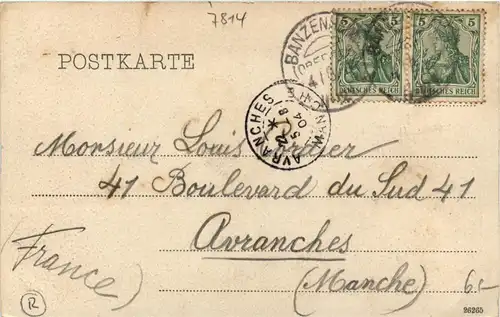 7814
POSTKARTE
BANZEN
5 5
DEUTSCHES REICH DEUTSCHES REICH
AVRANCHES
MANCHE
04
Monsieur Louis
41 Boulevard du Sud 41
Avranches
(France)
(Manche)
6.-
R
26265